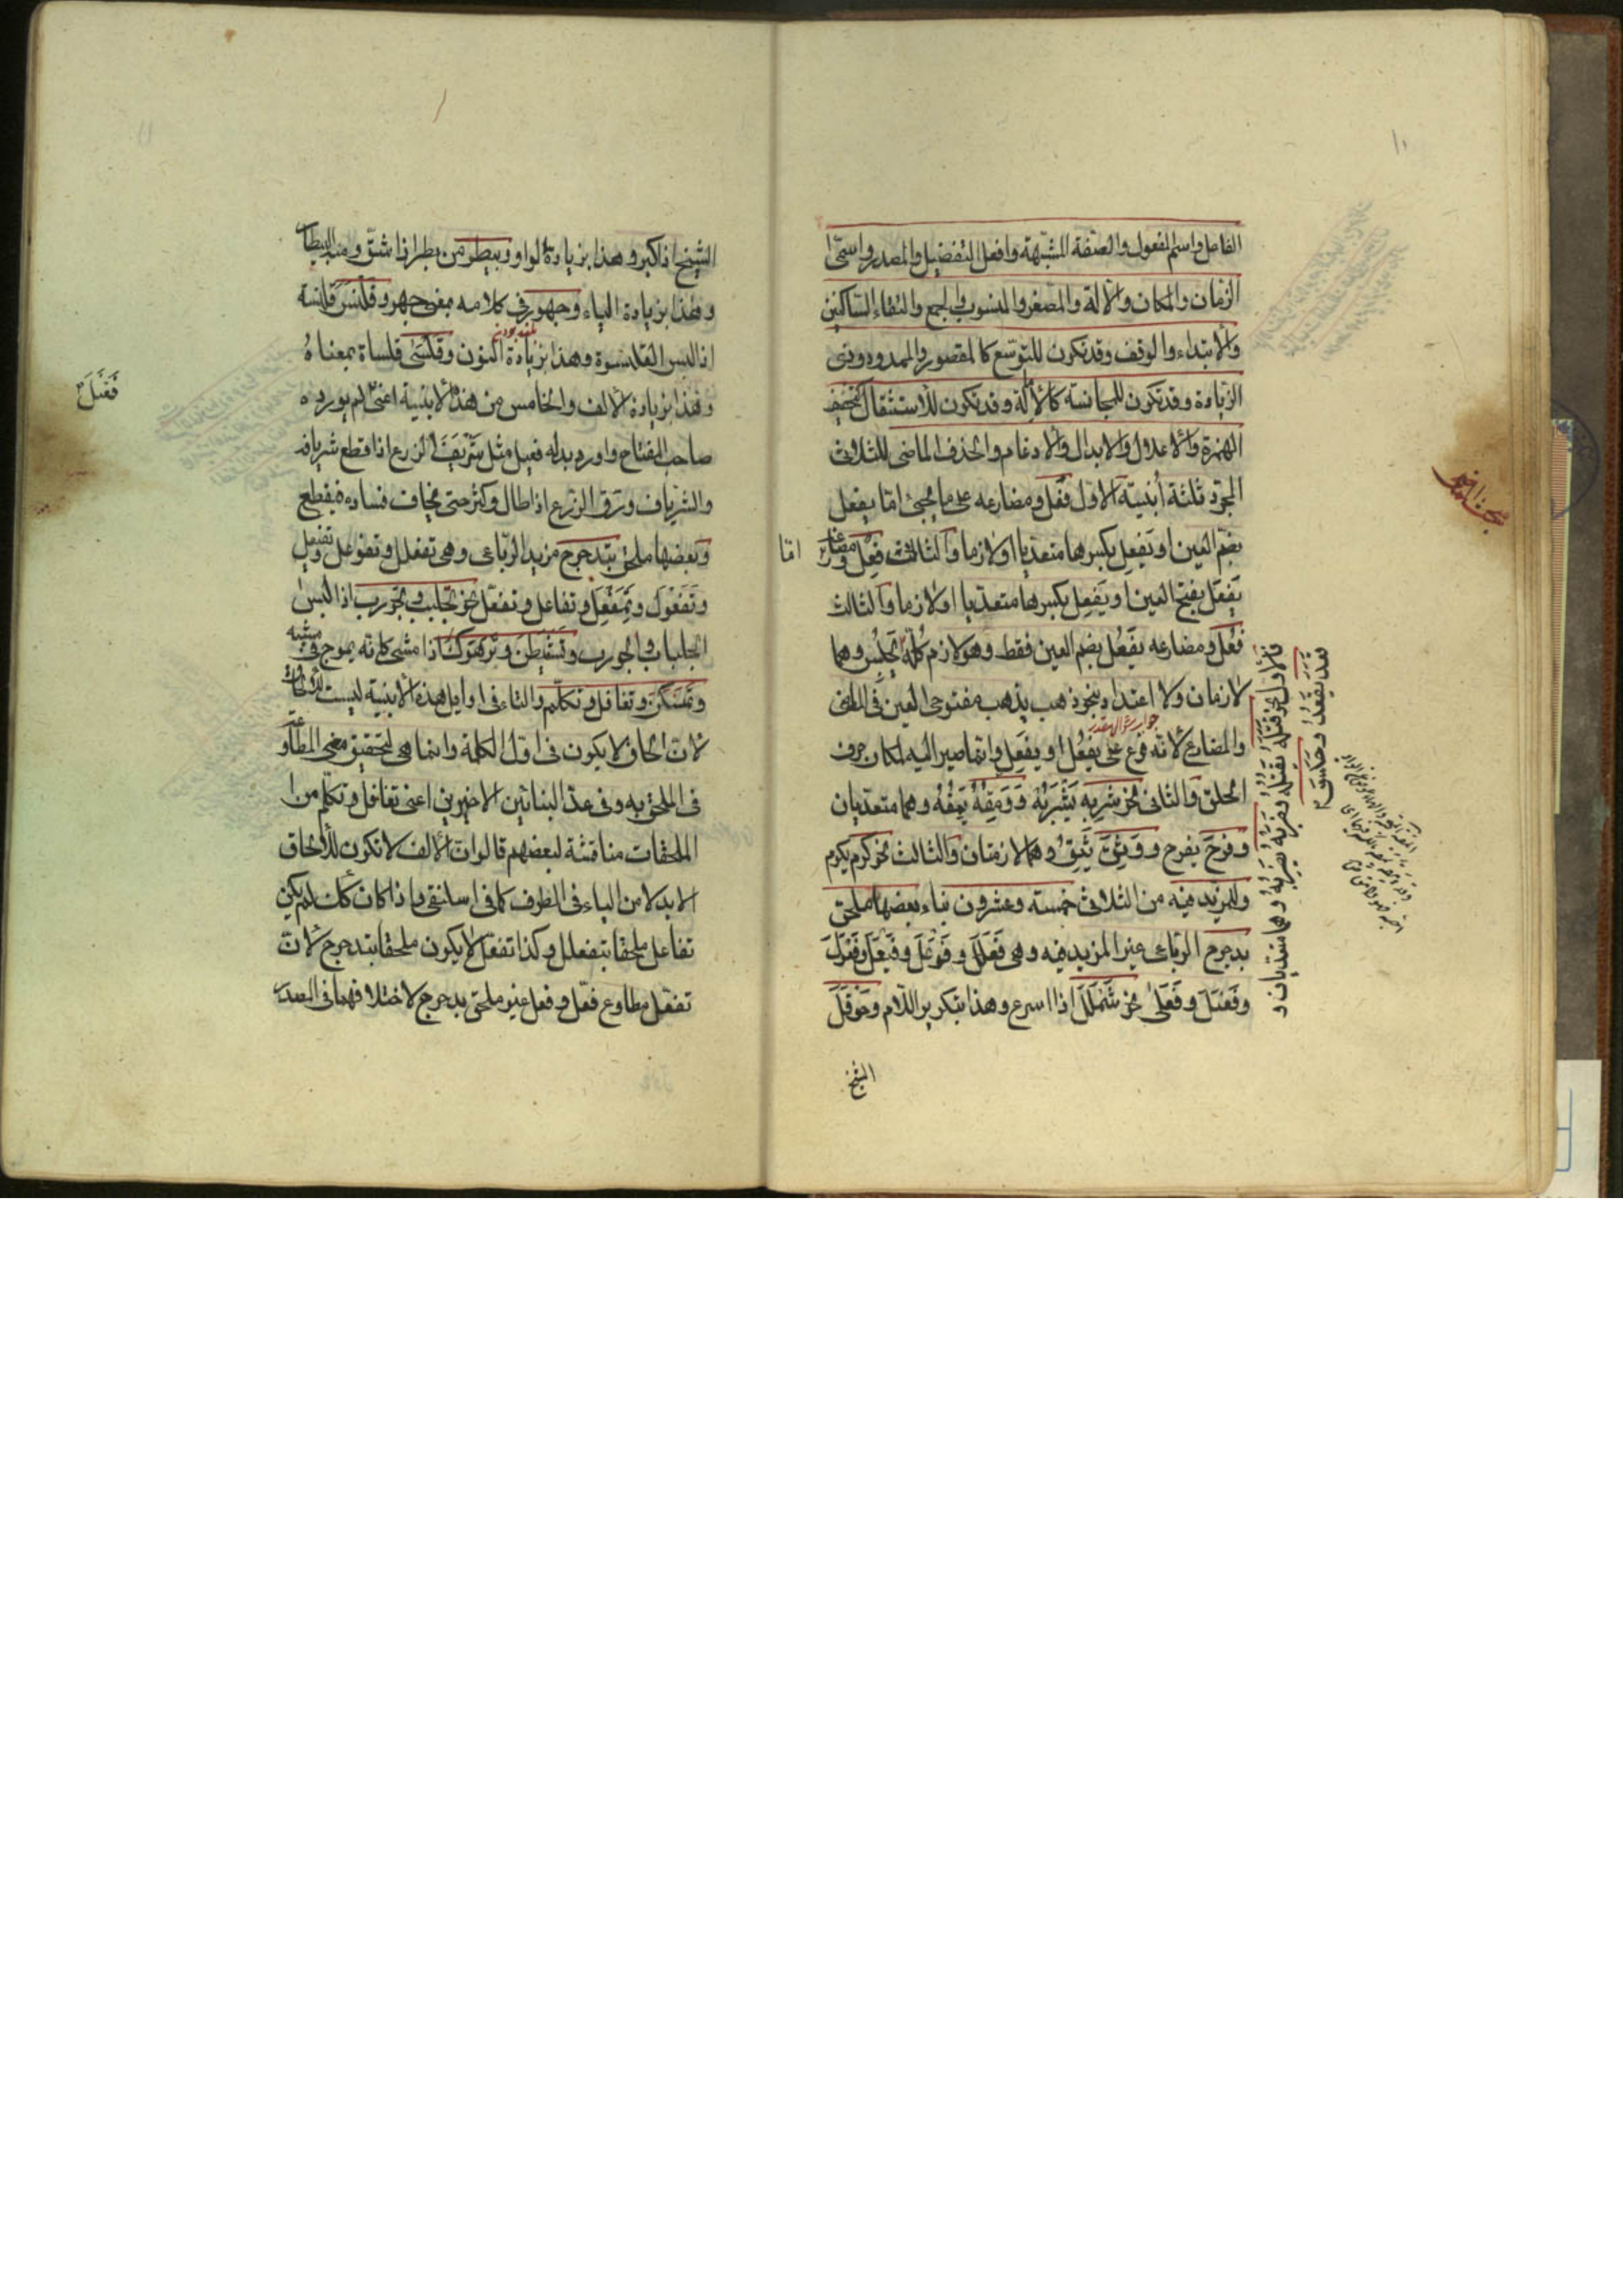 ١٠
الفاعل واسم المفعول والصفة المشبهة وافعل التفضيل والمصدر واسمى
الزمان والمكان والآلة والمصغر والمنسوب والجمع والتقاء الساكنين
والابتداء والوقف وقد تكون للتوسع كالمقصور والممدود وذى
الزيادة وقد تكون للمجانسة كالامالة وقد تكون للاستثقال كتخفيف
الهمزة والاعلال والابدال والادغام والحذف الماضى للثلاثى
المجرد ثلثة أبنية الاول فَعَل ومضارعه على ما يجئ امّا يفعل
بضم العين او يَفعِل بكسرها متعديا او لازما والثانى فَعِل ومضارعه امّا
يَفعَل بفتح العين او يَفعِل بكسرها متعديا او لازما والثالث
فَعُل ومضارعه يَفعُل بضم العين فقط وهو لازم كله
لازمان ولا اعتداد بنحو ذهب يذهب مفتوحى العين فى الماضى
جواب سؤال مقدر
والمضارع لانه فرع على يَفعُل او يَفعِل وانما صير اليه لمكان حرف
الحلق والثانى نحو شَرِبه يَشْرَبُه وَوَمِقَهُ يَمِقُهُ وهما متعديان
وفرح يفرح ووَثِق يَثِقُ وهما لازمان والثالث نحو كرم يكرم
وللمزيد فيه من الثلاثى خمسة وعشرون بناء بعضها ملحق
بدحرج الرباعى غير المزيد فيه وهى فَعْلَلَ وفَوْعَلَ وفَيْعَلَ وفَعْوَلَ
وفَعْنَلَ وفَعْلَى نحو شَمْلَلَ اذا اسرع وهذا بتكرير اللام وحَوْقَلَ
الشيخ
فالاول نحو قتله يقتله وضربه يضربه وهما متعديان و
قعد يقعد وجلس
الشيخ اذا كبر وهذا بزيادة الواو وبيطر من بطر اذا شق ومنه البيطار
وهذا بزيادة الياء وجهور فى كلامه بمعنى جهر وقلنس قلنسة
اذا لبس القلنسوة وهذا بزيادة النون وقلسى قلساة بمعناه
وهذا بزيادة الالف والخامس من هذه الابنية اعنى لم يورده
فَعْنَلَ
صاحب المفتاح واورد بدله فعيل مثل شَرْيَفَ الزرع اذا قطع شريافه
والشرياف ورق الزرع اذا طال وكثر حتى يخاف فساده فيقطع
وبعضها ملحق بتدحرج مزيد الرباعى وهى تفعلل وتفوعل وتفيعل
وتَفَعْوَلَ وتَمَفْعَلَ وتفاعل وتفعّل نحو تجلبب وتجورب اذا لبس
الجلباب والجورب وتشيطن وترهوك اذا مشى كانه يموج فى مشيه
وتمسكن وتغافل وتكلم والتاء فى اوايل هذه الابنية ليست للالحاق
لان الحاق لا يكون فى اول الكلمة وانما هى لتحقيق معنى المطاوعة
فى الملحق به وفى عد البنائين الاخيرين اعنى تغافل وتكلم من
الملحقات مناقشة لبعضهم قالوا ان الالف لا تكون للالحاق
الا بدلا من الياء فى الطرف كما فى اسلنقى واذا كان كذلك لم يكن
تفاعل ملحقا بتفعلل وكذا تفعّل لا يكون ملحقا بتدحرج لان
تفعّل مطاوع فعّل وفعل غير ملحق بدحرج لاختلافهما فى المصدر